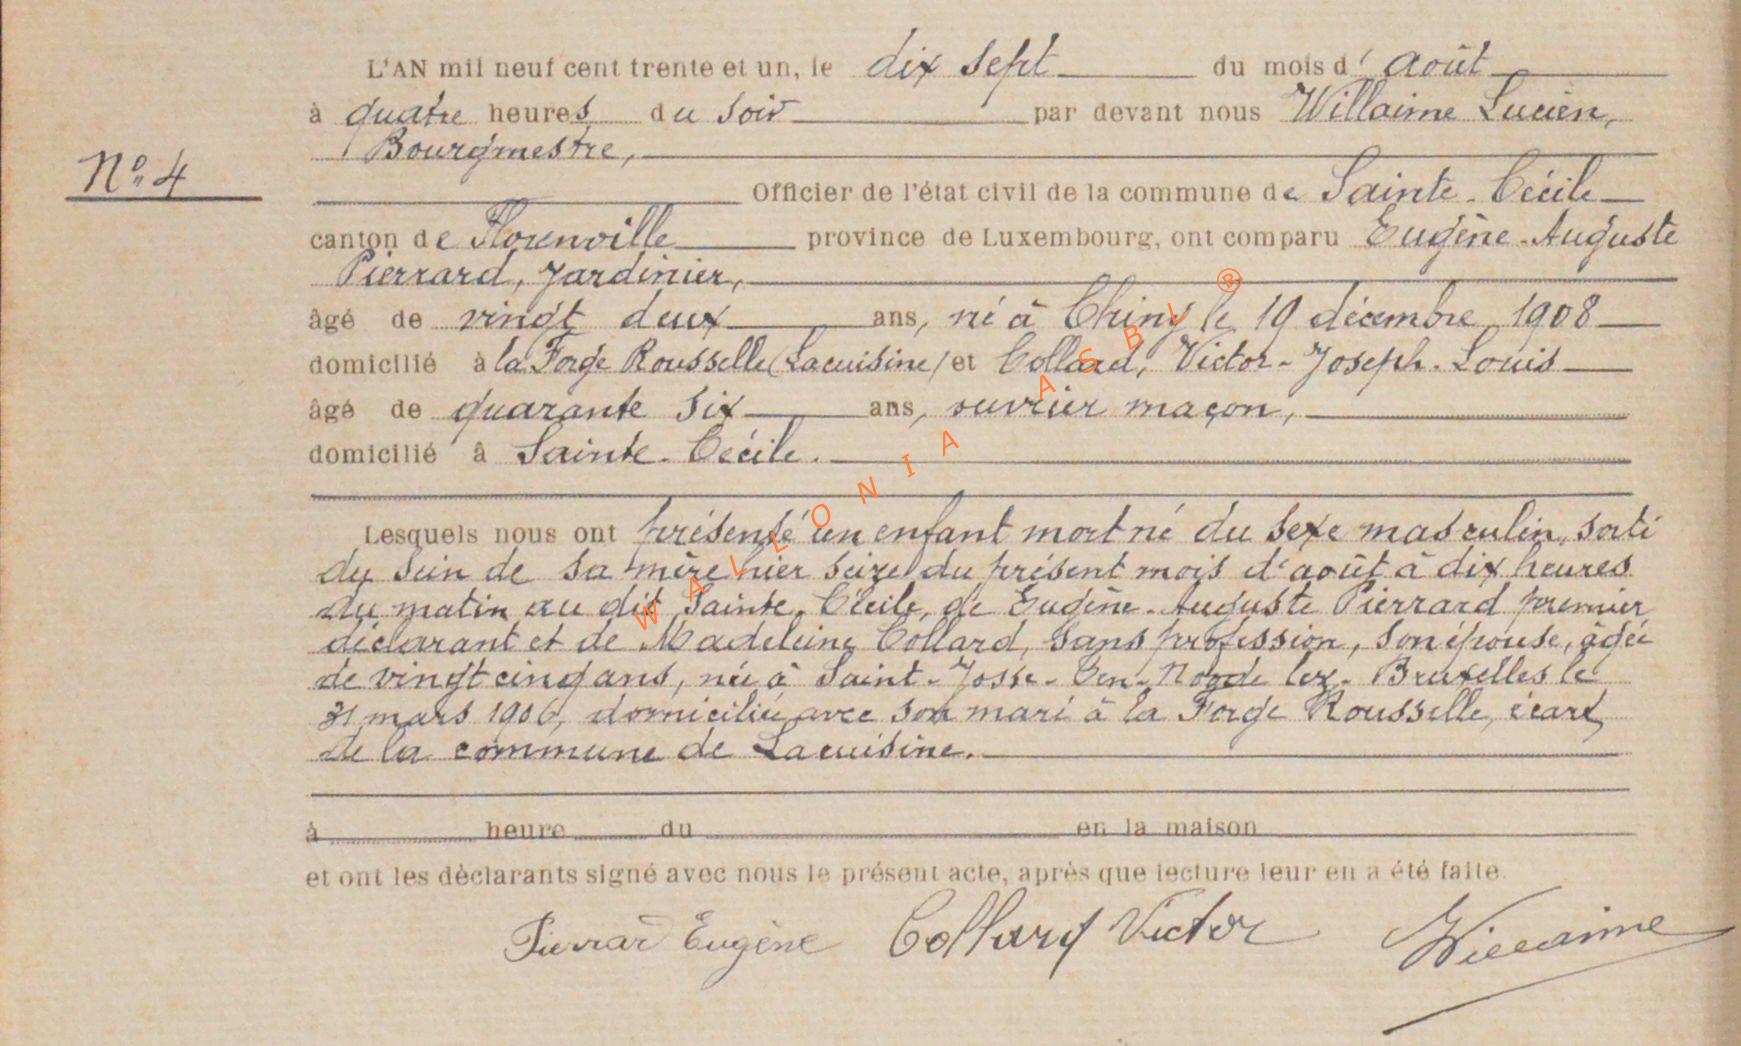 L'AN mil neuf cent trente et un, le dix sept du mois d' août
à quatre heures du soir par devant nous Willaime Lucien,
Bourgmestre,
N° 4
Officier de l'état civil de la commune de Sainte-Cécile
canton de Florenville province de Luxembourg, ont comparu Eugène-Auguste
Pierrard, jardinier,
âgé de vingt deux ans, né à Chiny le 19 décembre 1908
domicilié à la Forge Rousselle (Lacuisine) et Collard, Victor-Joseph-Louis
âgé de quarante six ans, ouvrier maçon,
domicilié à Sainte-Cécile.
Lesquels nous ont présenté un enfant mort né du sexe masculin, sorti
du sein de sa mère hier seize du présent mois d'août à dix heures
du matin au dit Sainte-Cécile, de Eugène-Auguste Pierrard premier
déclarant et de Madeleine Collard, sans profession, son épouse, âgée
de vingt cinq ans, née à Saint-Josse-Ten-Noode lez-Bruxelles le
31 mars 1906, domiciliée avec son mari à la Forge Rousselle, écart
de la commune de Lacuisine.
à heure du en la maison
et ont les déclarants signé avec nous le présent acte, après que lecture leur en a été faite.
Pierrard Eugène Collard Victor Willaime
WALLONIA ASBL ®